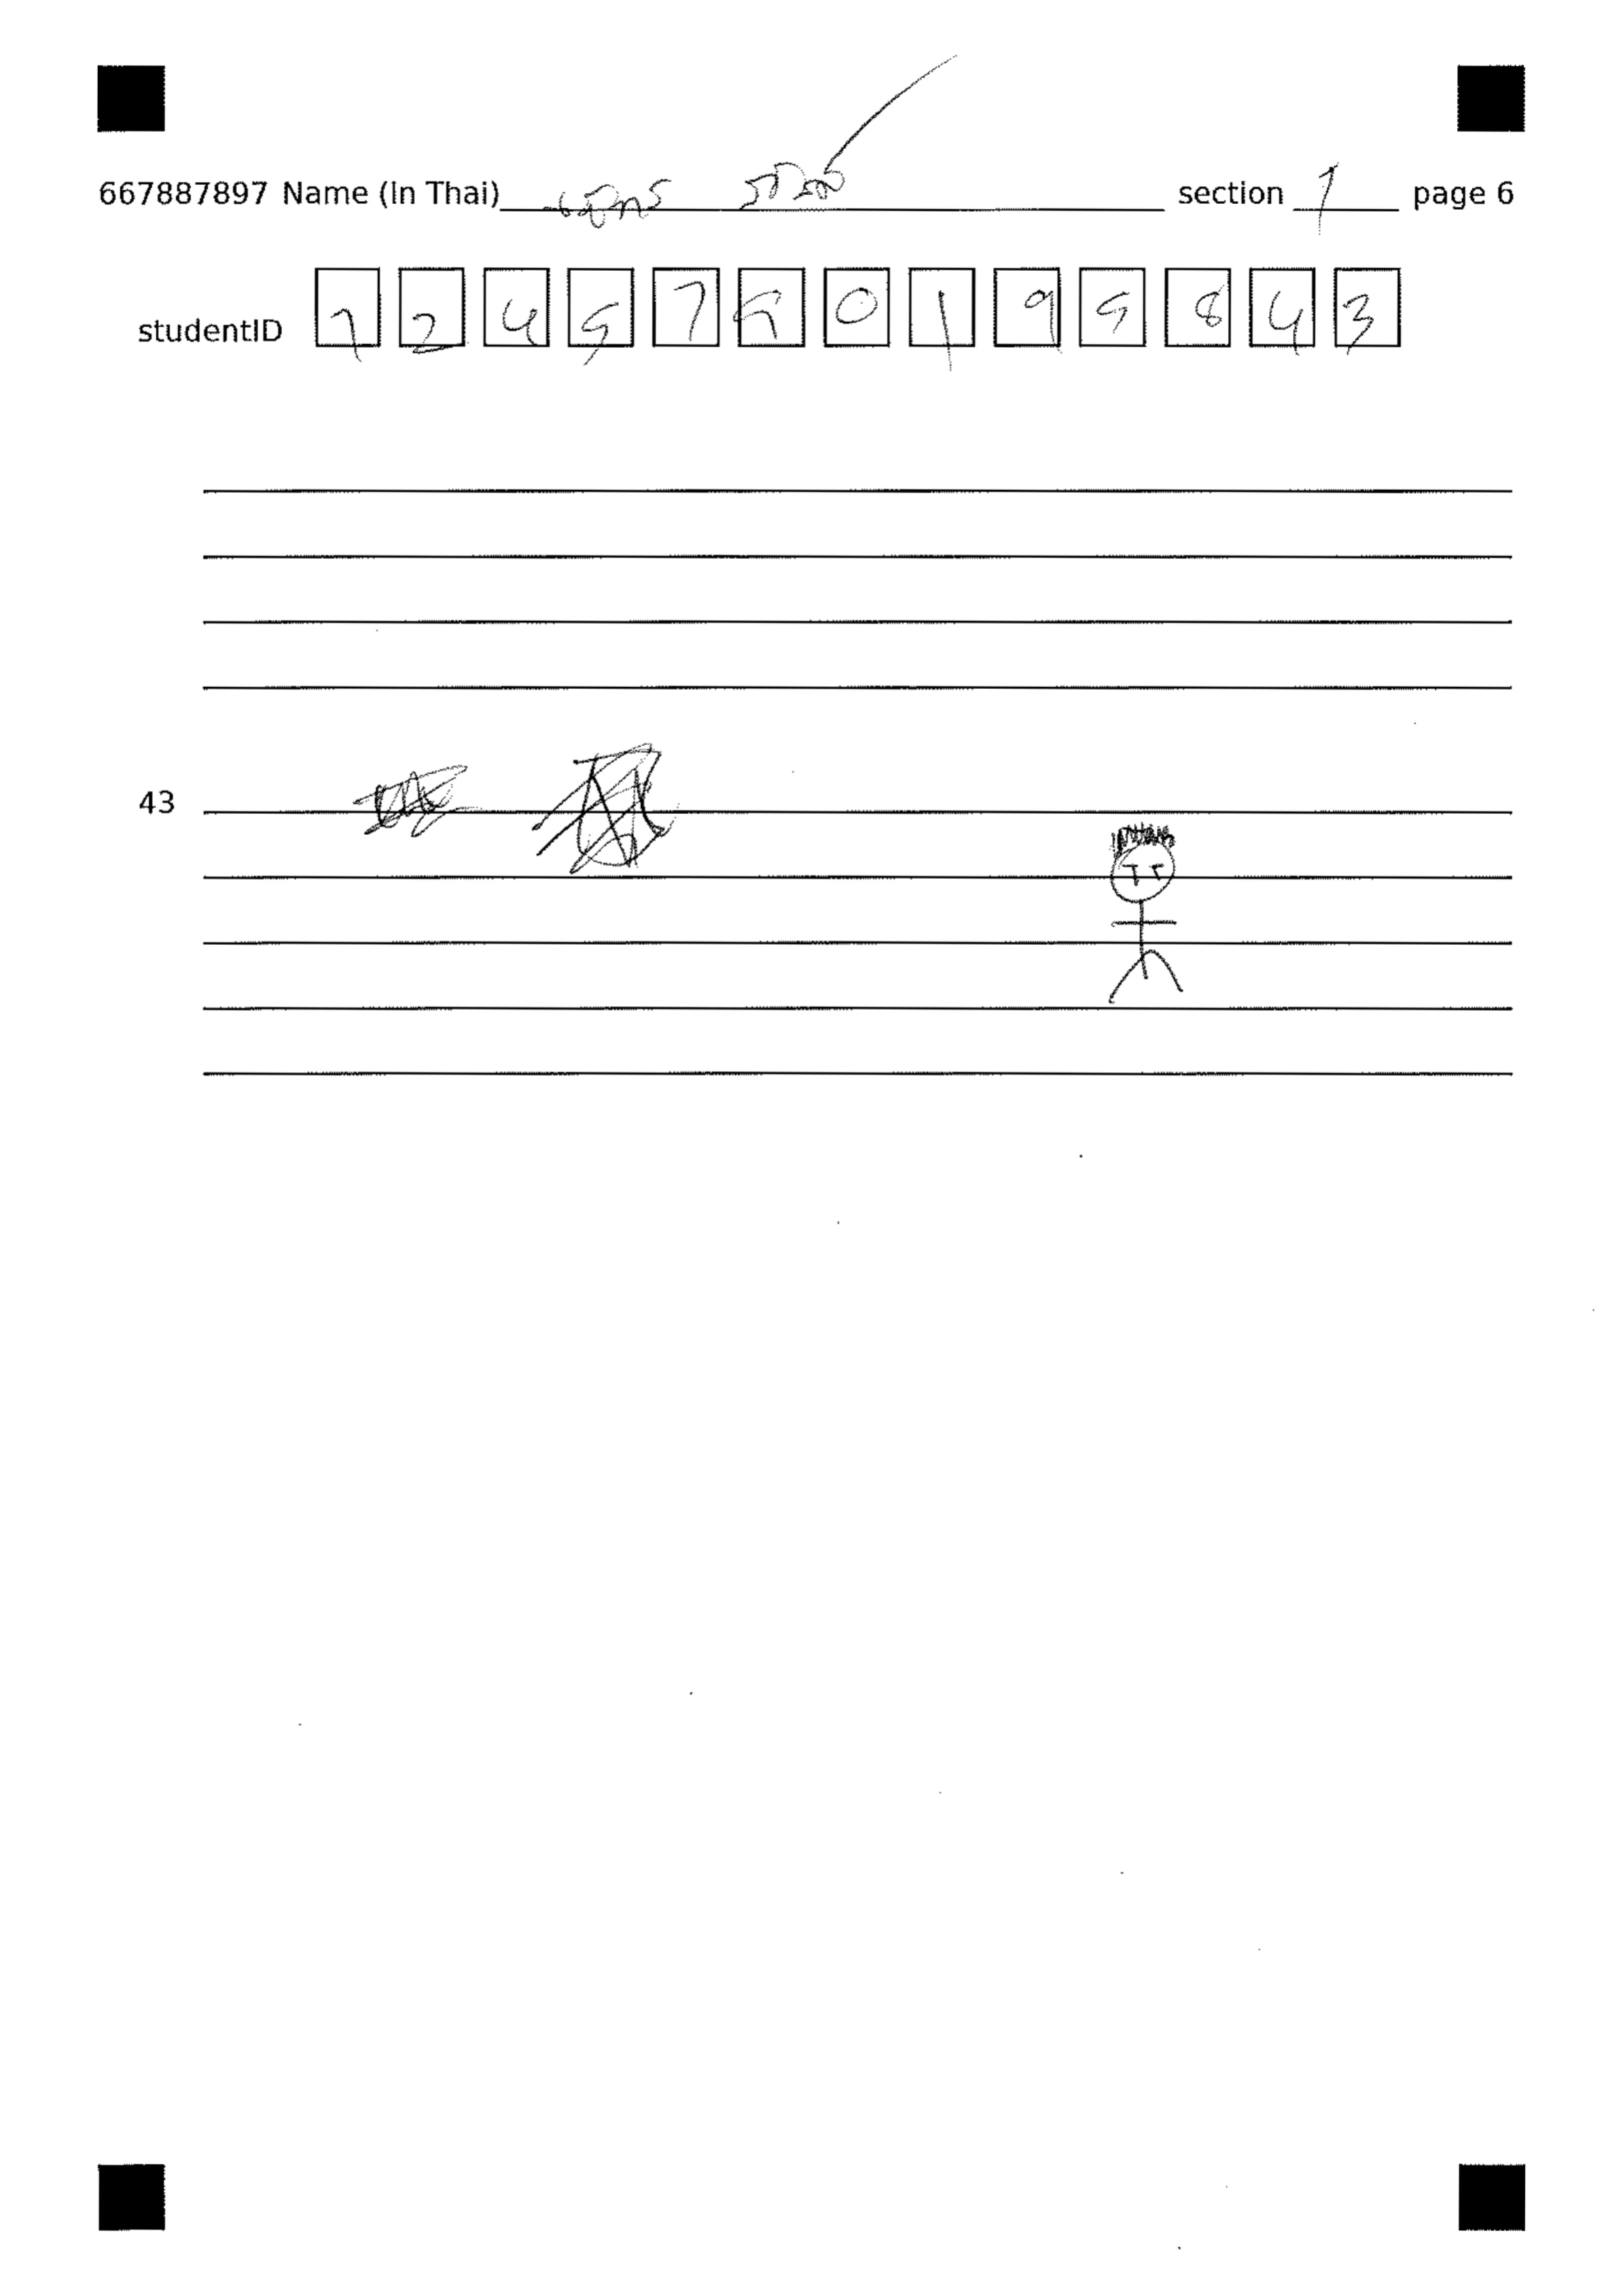 667887897 Name (In Thai) section 1 page 6
studentID 1 2 4 5 7 5 0 1 9 5 8 4 3
43